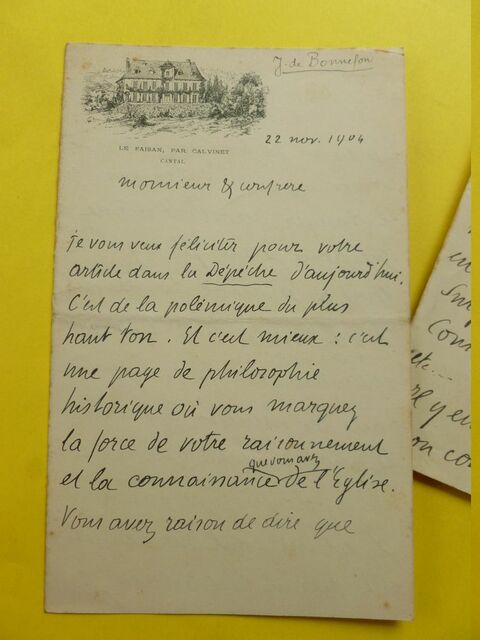 J. de Bonnefon
22 nov. 1904
LE FAISAN, PAR CALVINET
CANTAL
Monsieur & confrère
Je vous veux féliciter pour votre
article dans la Dépêche d'aujourd'hui.
C'est de la polémique du plus
haut ton. Et c'est mieux : c'est
une page de philosophie
historique où vous marquez
la force de votre raisonnement
que vous avez
et la connaissance de l'Eglise.
Vous avez raison de dire que
en
Sur
Cons
etc...
re y en
on con